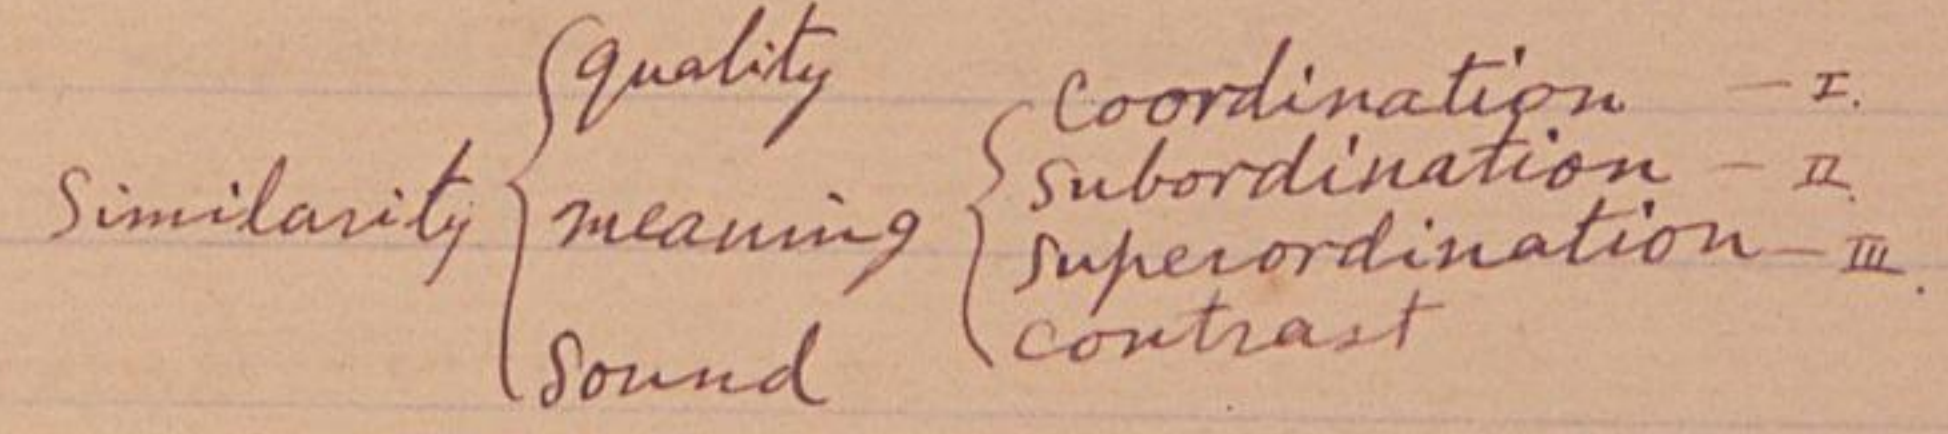 Similarity
quality
meaning
Sound
Coordination - I.
Subordination - II.
Superordination - III.
contrast